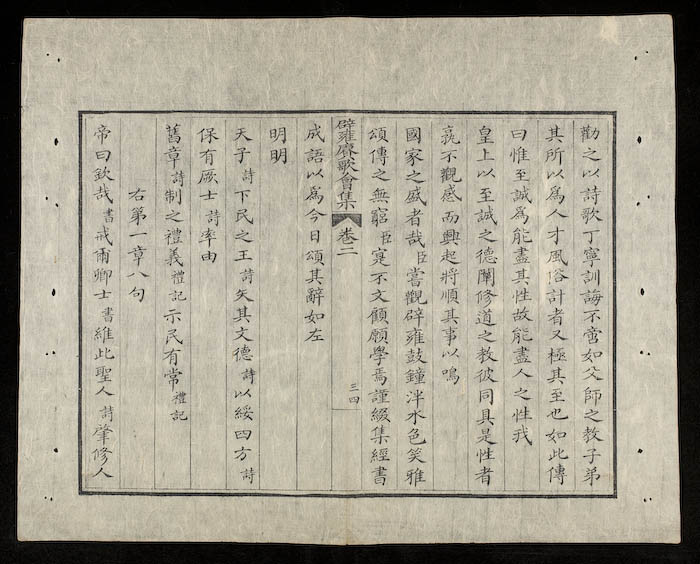 勸之以詩歌丁寧訓誨不啻如父師之教子弟
其所以為人才風俗計者又極其至也如此傳
曰惟至誠為能盡其性故能盡人之性我
皇上以至誠之德闡修道之教彼同具是性者
孰不觀感而興起將順其事以鳴
國家之盛者哉臣嘗觀辟雍鼓鐘泮水色笑雅
頌傳之無窮臣寔不文顧願學焉謹綴集經書
辟雍賡歌會集 卷二 三四
成語以為今日頌其辭如左
明明
天子詩下民之王詩矢其文德詩以綏四方詩
保有厥士詩率由
舊章詩制之禮義禮記示民有常禮記
右第一章八句
帝曰欽哉書戒爾卿士書維此聖人詩肇修人